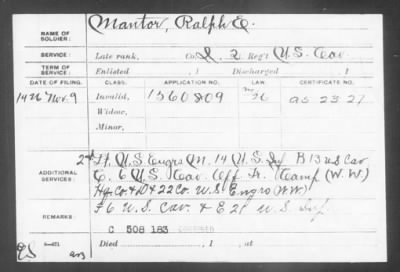 NAME OF SOLDIER: Mantor, Ralph E.
SERVICE: Late rank, Co. I, 2 Reg't U.S. Cav
TERM OF SERVICE: Enlisted , 1 Discharged , 1
DATE OF FILING. CLASS. APPLICATION NO. LAW. CERTIFICATE NO.
1926 Nov. 9 Invalid, 1560809 26 23 27
Widow,
Minor,
ADDITIONAL SERVICES: 2nd Lt. U.S. Engrs M. 14 U.S. Inf B 13 U.S Cav
E. 6 U.S. Cav Off. Tr. Camp (W.W.)
Hq. Co. & D & 22 Co. U.S Engrs (WW)
REMARKS: F 6 U.S. Cav. & E 21 U.S. Inf.
C 508 183
Died , 1 , at